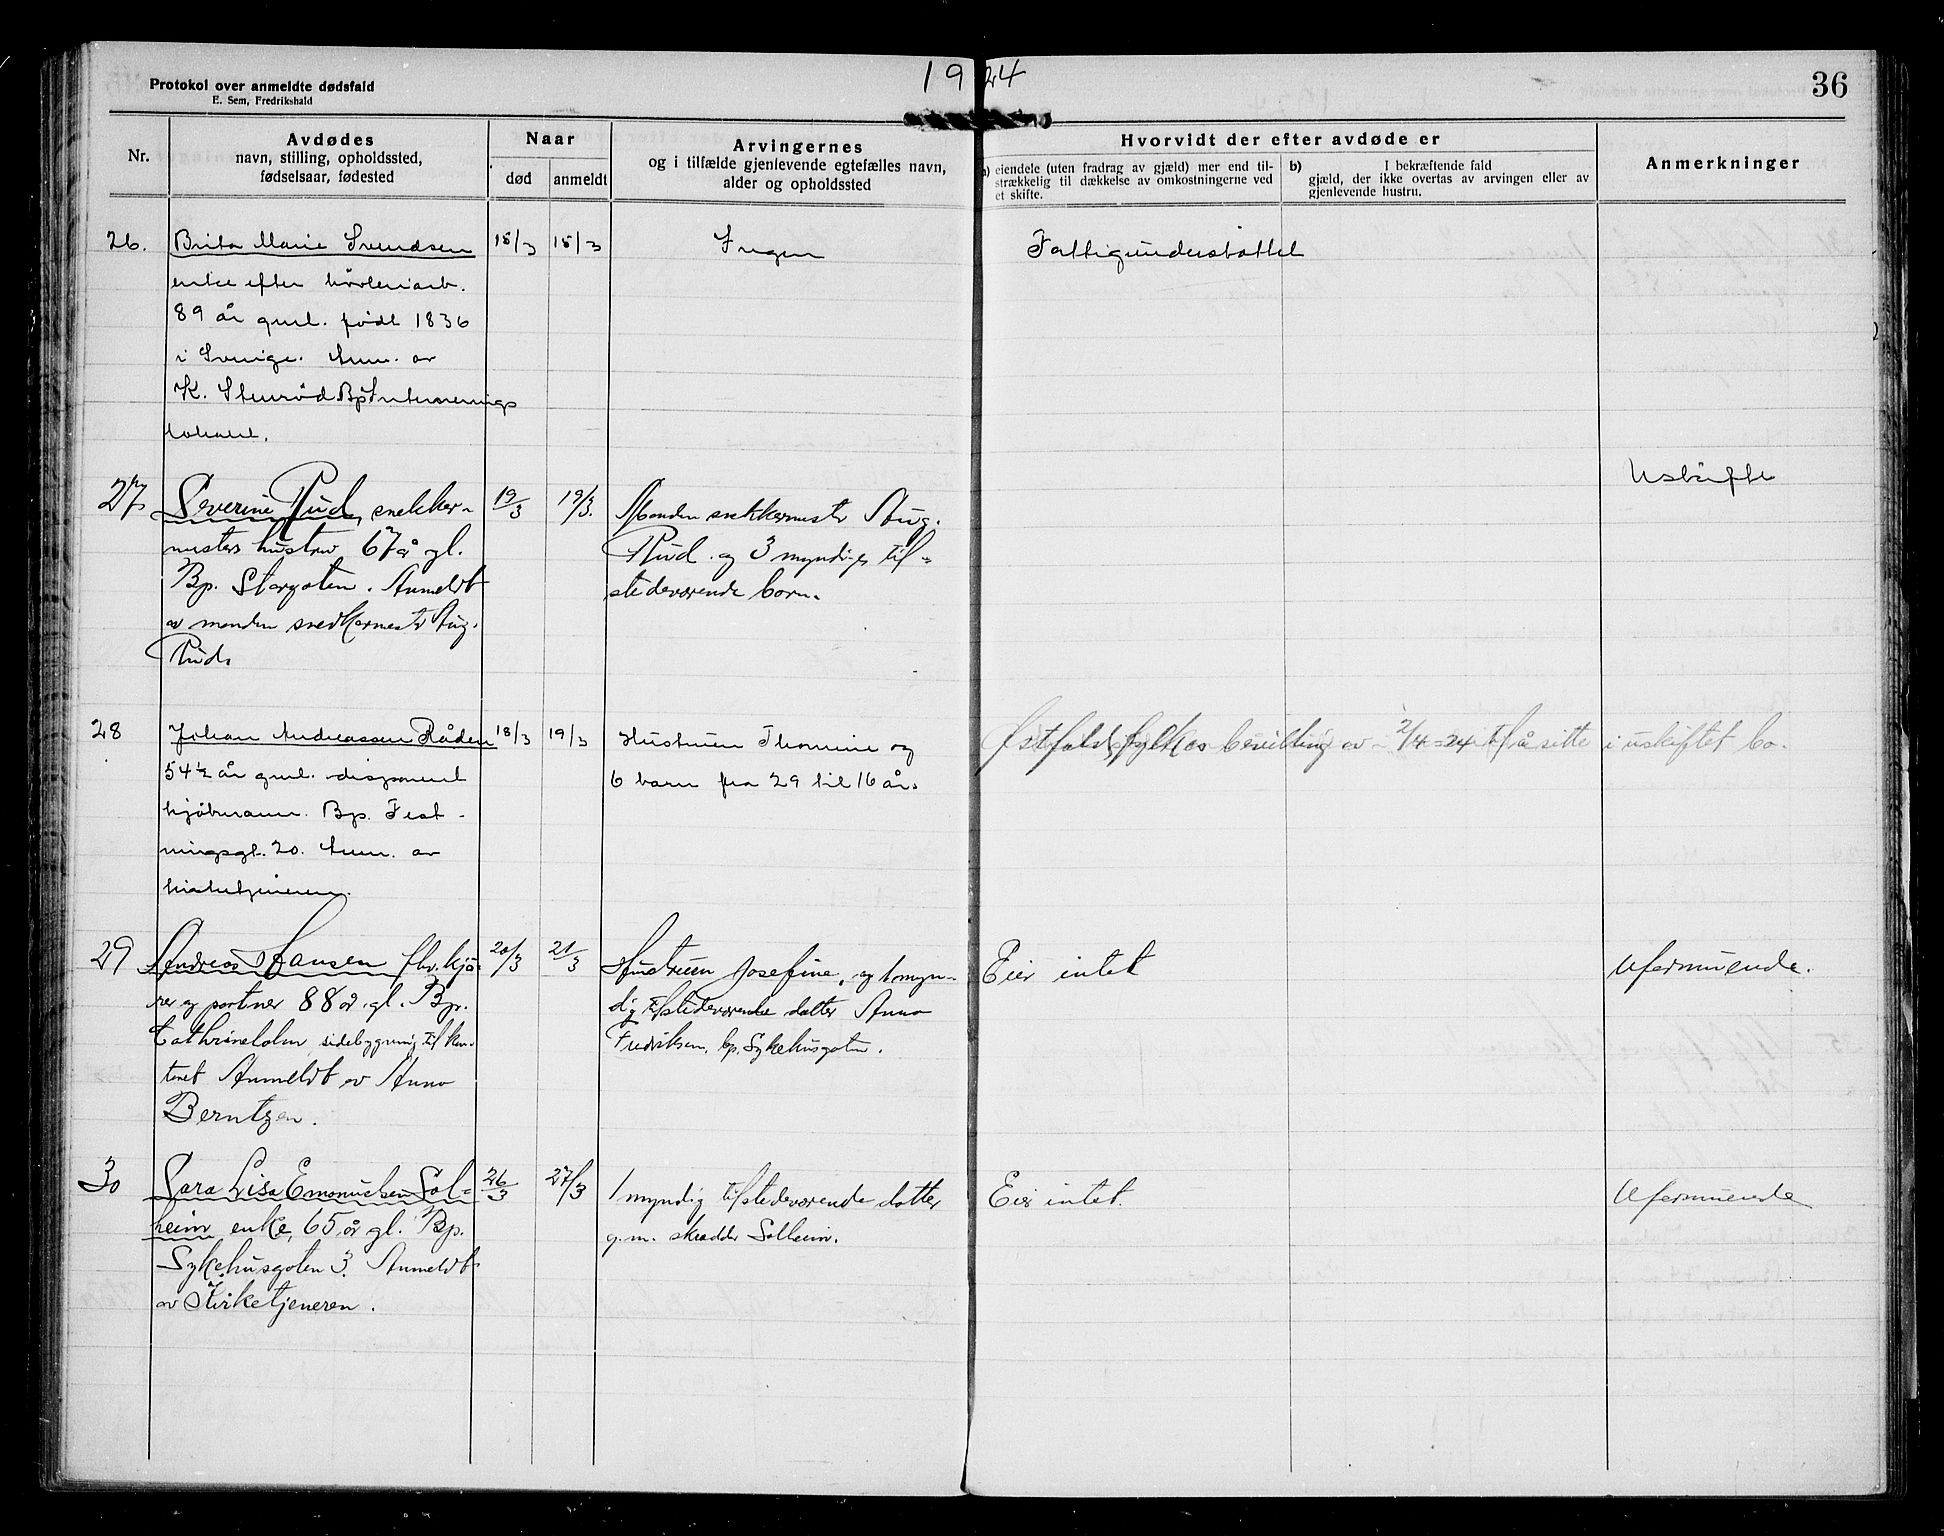 Protokol over anmeldte dødsfald
E. Sem, Fredrikshald
1924
36
Nr.
Avdødes
navn, stilling, opholdssted,
fødselsaar, fødested
Naar
død
anmeldt
Arvingernes
og i tilfælde gjenlevende egtefælles navn,
alder og opholdssted
Hvorvidt der efter avdøde er
a) eiendele (uten fradrag av gjæld) mer end til-
strækkelig til dækkelse av omkostningerne ved
et skifte.
b) I bekræftende fald
gjæld, der ikke overtas av arvingen eller av
gjenlevende hustru.
Anmerkninger
26.
Brita Marie Svendsen
enke efter
89 år gml. født 1836
i Sverige. Anm. av
K. Stenrød Bp
lokalet.
18/3
18/3
Ingen
Fattigunderstøttet
27
Severine Rud, snekker-
mesters hustru 67 år gl.
Bp. Storgaten. Anmeldt
av manden snedkermester Aug.
Rud.
19/3
19/3.
Manden snekkermester Aug.
Rud. og 3 myndige til-
stedeværende barn.
Uskifte
28
Johan Andreassen Råden
54½ år gml. disponent
kjøbmann. Bp. Fest-
ningsgt. 20. Anm. av
kirketjeneren.
18/3
19/3
Hustruen Thomine og
6 barn fra 29 til 16 år.
Østfold fylkes bevilling av 2/4-24 til å sitte i uskiftet bo.
29
Andreas Hansen fhv. kjø-
rer og portner 88 år. gl. Bp.
Cathrineholm sidebygning til kon-
toret Anmeldt av Anna
Berntzen.
20/3
21/3
Hustruen Josefine, og 1 myn-
dig tilstedeværende datter Anna
Fredriksen, bp. Sykehusgaten.
Eier intet
Uformuende.
30
Sara Lisa Emanuelsen Sol-
heim enke, 65 år gl. Bp.
Sykehusgaten 3. Anmeldt
av Kirketjeneren.
26/3
27/3
1 myndig tilstedeværende datter
g.m. skrædder Solheim.
Eier intet.
Uformuende